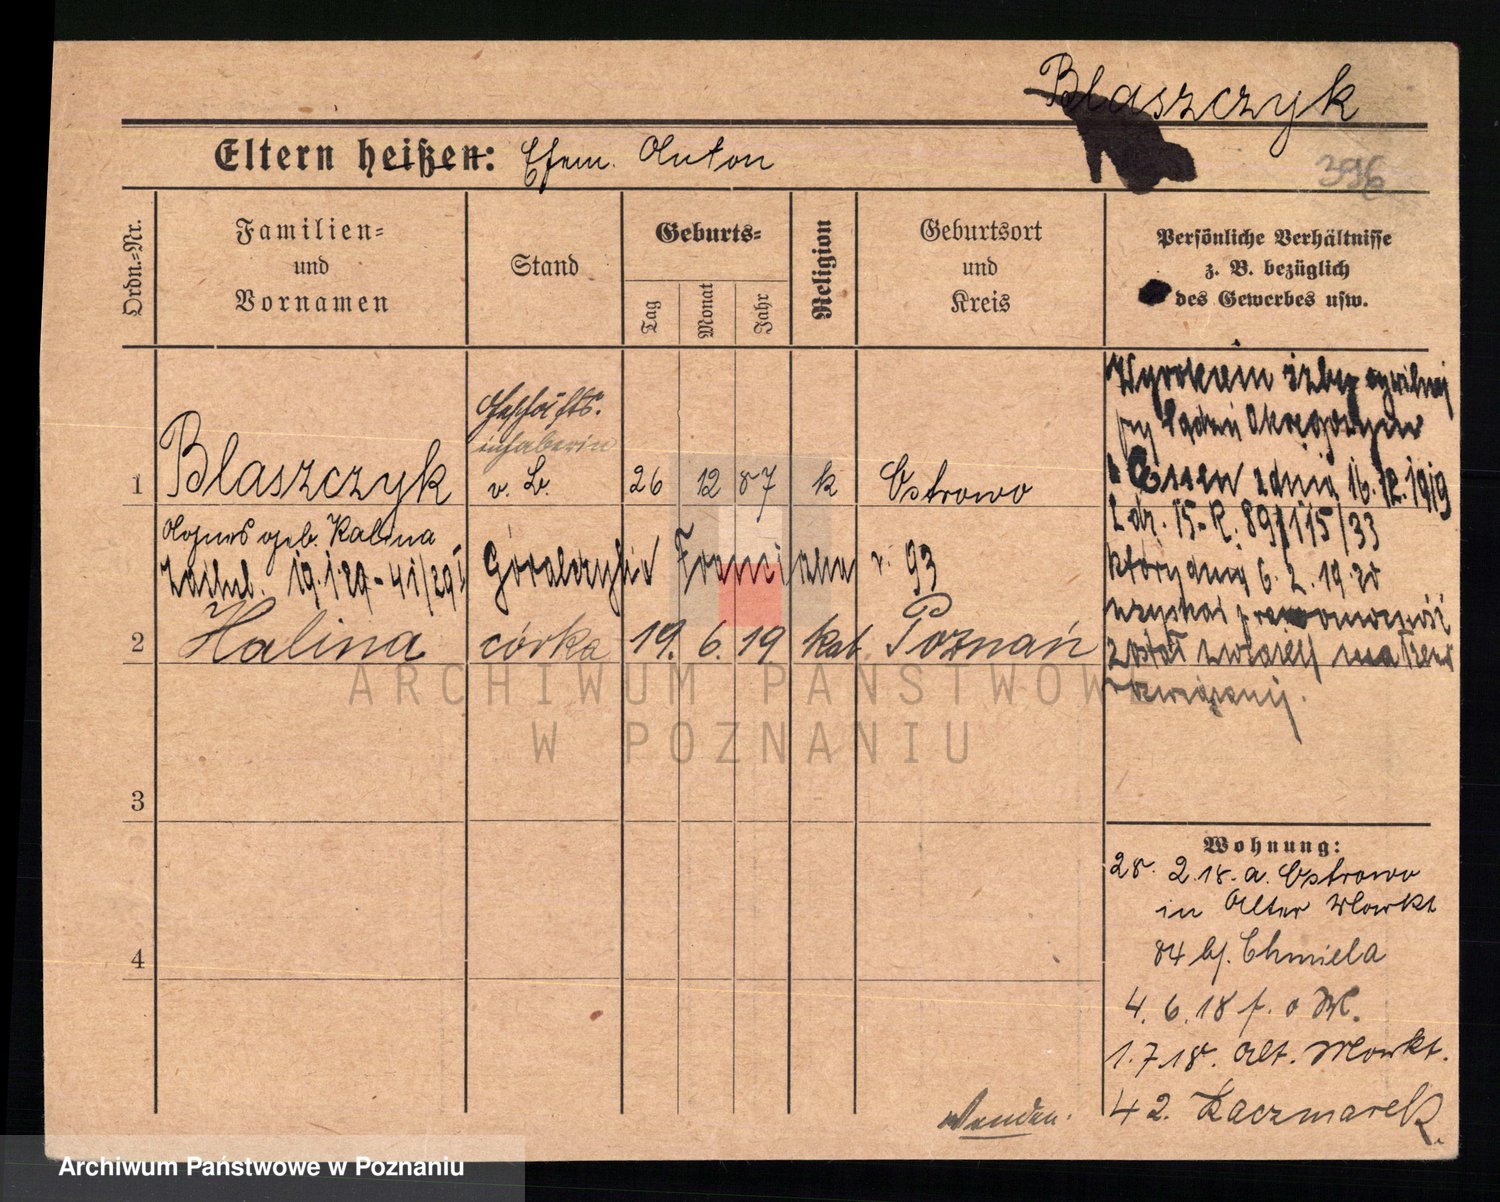 Blaszczyk
Eltern heißen: Ehem. Anton
396
Ordn.-Nr.
Familien-
und
Vornamen
Stand
Geburts-
Tag
Monat
Jahr
Religion
Geburtsort
und
Kreis
Persönliche Verhältnisse
z. B. bezüglich
des Gewerbes usw.
Geschäfts-
inhaberin
1 Blaszczyk v. B. 26 12 87 k Ostrowo
Agnes geb. Kalina
zaślub. 19.1.29 - 41/29 I Franciszka r. 93
2 Halina córka 19. 6. 19 kat. Poznań
3
4
Wyrokiem izby cywilnej
przy Sądzie Okręgowym
w Essen z dnia 16.12.1919
L. dz. 15. R. 89/115/33
który dnia 6. 2. 1920
uzyskał prawomocność
został związek małżeń
rozwiązany.
Wohnung:
28. 2. 18. a. Ostrowo
in Alter Markt
84 bj. Chmiela
4. 6. 18 f. o M.
1. 7. 18. Alt. Markt.
42. Kaczmarek.
Wenden.
ARCHIWUM PAŃSTWOWE
W POZNANIU
Archiwum Państwowe w Poznaniu